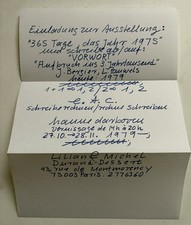 Einladung zur Ausstellung:
"365 Tage, das Jahr 1975"
und schreibe ab/auf:
"VORWORT"
"Aufbruch ins 3. Jahrtausend"
J. Bergier, L. Pauwels
heute 1979
1+1=1,2/2=1,2
E. A. C.
schreibe rechnen/rechne schreiben
hanne darboven
Vernissage
27.10 → 28.11. 1979
Lilian & Michel
Durand-Dessert
43 rue de Montmorency
75003 Paris. 2776360